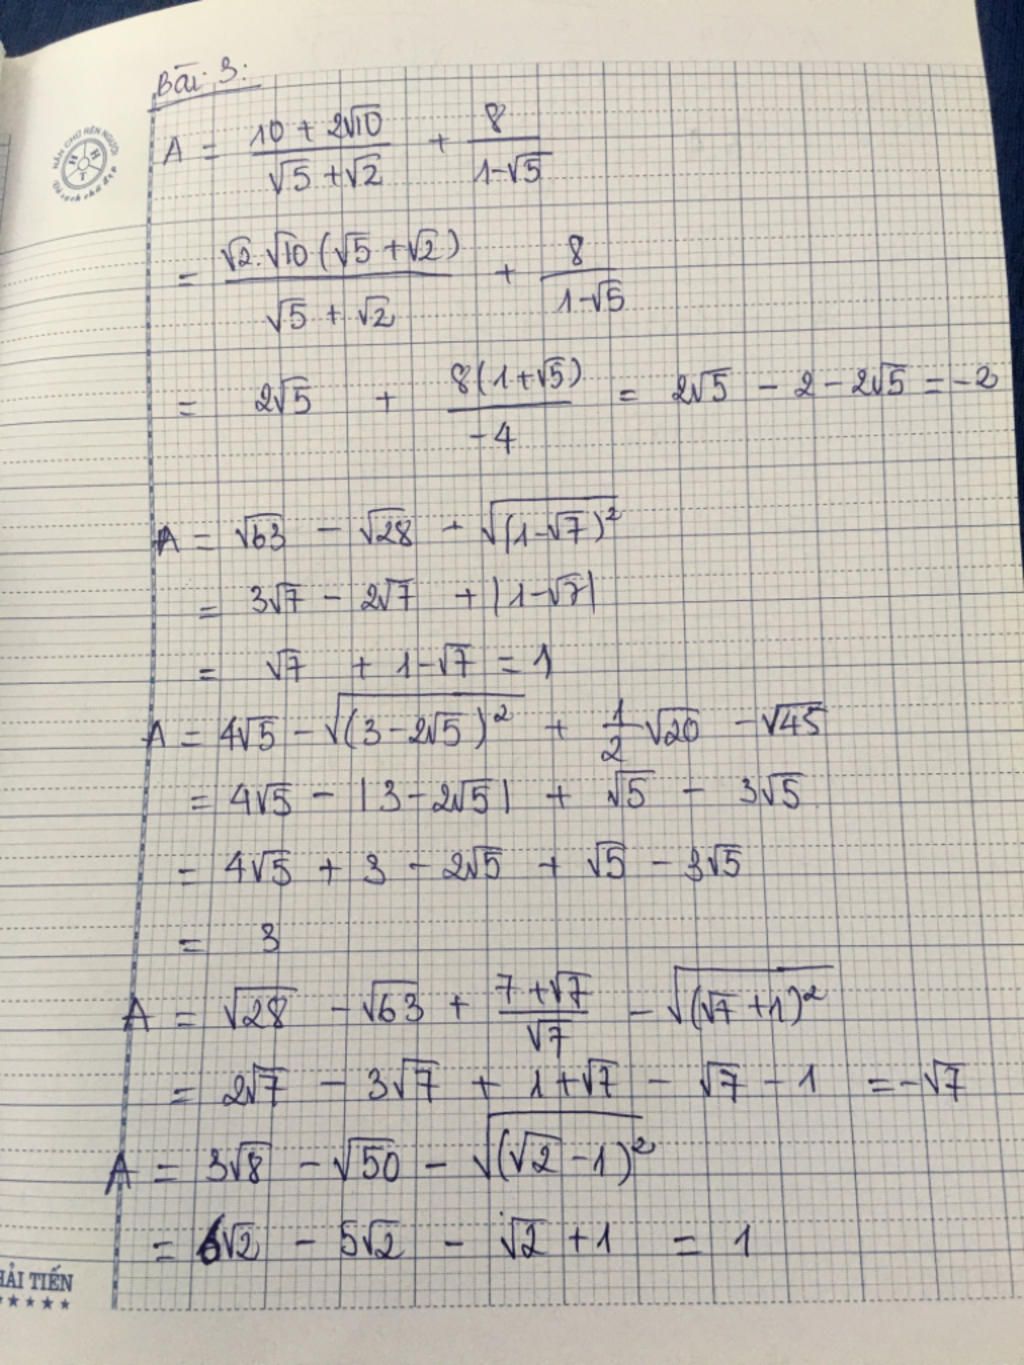 Bài 3:
A = \frac{10 + 2\sqrt{10}}{\sqrt{5} + \sqrt{2}} + \frac{8}{1-\sqrt{5}}
= \frac{\sqrt{2}.\sqrt{10}(\sqrt{5} + \sqrt{2})}{\sqrt{5} + \sqrt{2}} + \frac{8}{1-\sqrt{5}}
= 2\sqrt{5} + \frac{8(1+\sqrt{5})}{-4} = 2\sqrt{5} - 2 - 2\sqrt{5} = -2
A = \sqrt{63} - \sqrt{28} + \sqrt{(1-\sqrt{7})^2}
= 3\sqrt{7} - 2\sqrt{7} + |1-\sqrt{7}|
= \sqrt{7} + 1-\sqrt{7} = 1
A = 4\sqrt{5} - \sqrt{(3-2\sqrt{5})^2} + \frac{1}{2}\sqrt{20} - \sqrt{45}
= 4\sqrt{5} - |3-2\sqrt{5}| + \sqrt{5} - 3\sqrt{5}
= 4\sqrt{5} + 3 - 2\sqrt{5} + \sqrt{5} - 3\sqrt{5}
= 3
A = \sqrt{28} - \sqrt{63} + \frac{7+\sqrt{7}}{\sqrt{7}} - \sqrt{(\sqrt{7}+1)^2}
= 2\sqrt{7} - 3\sqrt{7} + 1+\sqrt{7} - \sqrt{7} - 1 = -\sqrt{7}
A = 3\sqrt{8} - \sqrt{50} - \sqrt{(\sqrt{2}-1)^2}
= 6\sqrt{2} - 5\sqrt{2} - \sqrt{2} + 1 = 1
ẢI TIẾN